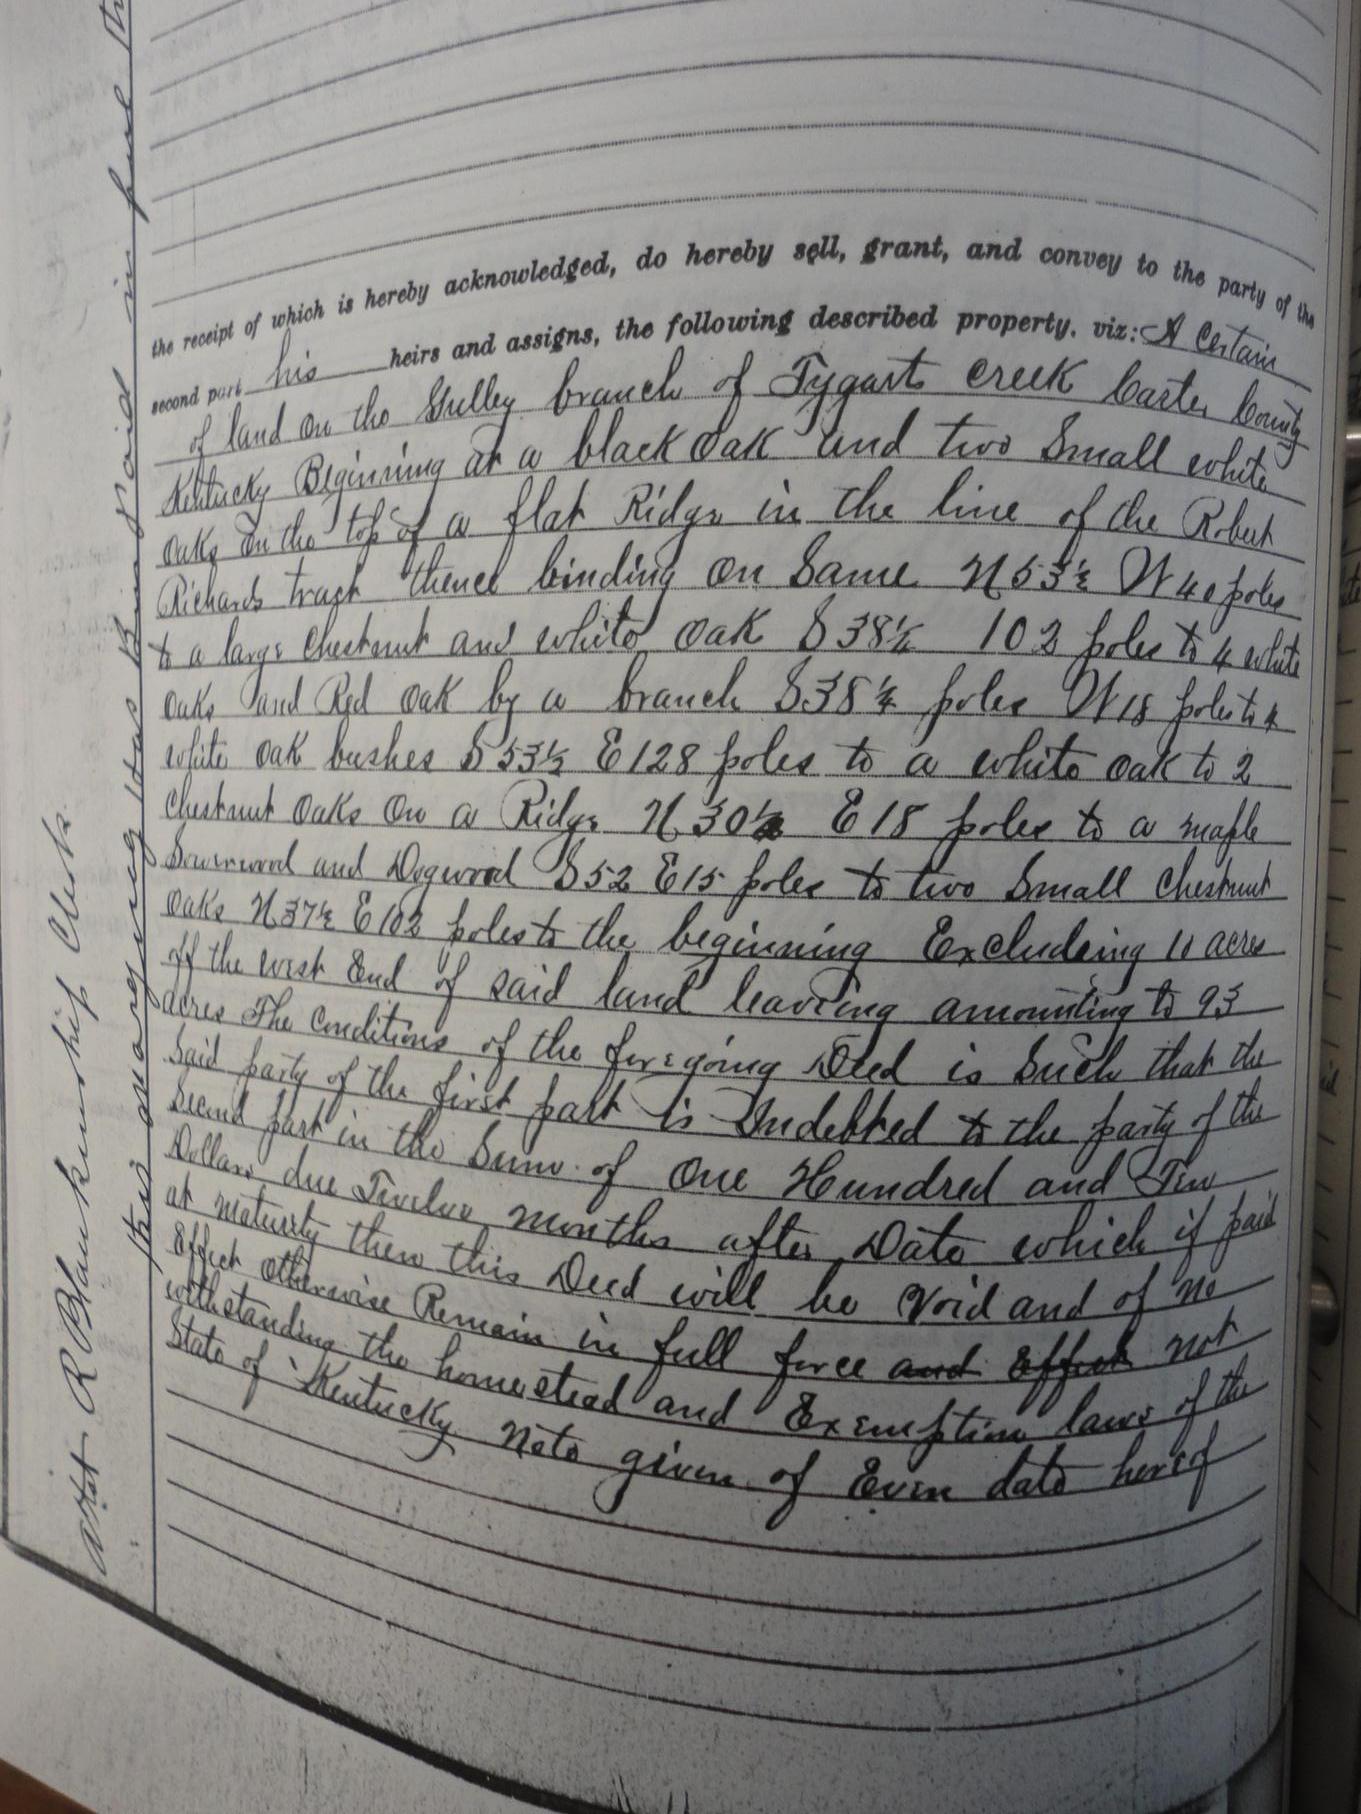 the receipt of which is hereby acknowledged, do hereby sell, grant, and convey to the party of the
second part his heirs and assigns, the following described property. viz: A Certain
of land on the Gulley branch of Tygarts Creek Carter County
Kentucky Beginning at a black oak and two Small white
oaks on the top of a flat Ridge in the line of the Robert
Richards tract thence binding on Same N 53½ W 40 poles
to a large Chestnut and white oak S 38¼ 102 poles to 4 white
oaks and Red oak by a branch S 38¼ poles W 18 poles to 4
white oak bushes S 53½ E 128 poles to a white oak to 2
Chestnut oaks on a Ridge N 30½ E 18 poles to a maple
Sourwood and Dogwood S 52 E 15 poles to two Small Chestnut
oaks N 37½ E 102 poles to the beginning Excludeing 10 acres
off the west End of said land leaveing amounting to 93
acres The Conditions of the foregoing Deed is Such that the
Said party of the first part is Indebted to the party of the
Second part in the Sum of One Hundred and Ten
Dollars due Twelve months after Date which if paid
at maturity then this Deed will be void and of no
Effect otherwise Remain in full force and Effect not
withstanding the homestead and Exemption laws of the
State of Kentucky Note given of Even date hereof
this mortgage has been paid in full
Attest R Blankenship Clerk